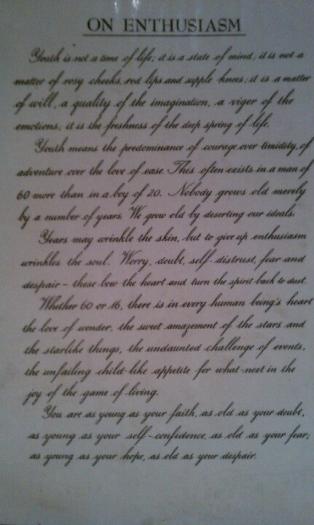 ON ENTHUSIASM
Youth is not a time of life, it is a state of mind; it is not a
matter of rosy cheeks, red lips and supple knees; it is a matter
of will, a quality of the imagination, a vigor of the
emotions; it is the freshness of the deep spring of life.
Youth means the predominance of courage over timidity, of
adventure over the love of ease. This often exists in a man of
60 more than in a boy of 20. Nobody grows old merely
by a number of years. We grow old by deserting our ideals.
Years may wrinkle the skin, but to give up enthusiasm
wrinkles the soul. Worry, doubt, self-distrust, fear and
despair - these bow the heart and turn the spirit back to dust.
Whether 60 or 16, there is in every human being's heart
the love of wonder, the sweet amazement of the stars and
the starlike things, the undaunted challenge of events,
the unfailing child-like appetite for what-next in the
joy of the game of living.
You are as young as your faith, as old as your doubt,
as young as your self-confidence, as old as your fear;
as young as your hope, as old as your despair.